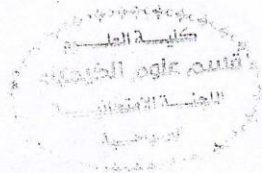 كليــة العلــوم
قسم علوم الكيمياء
اللجنــة الامتحانيــة